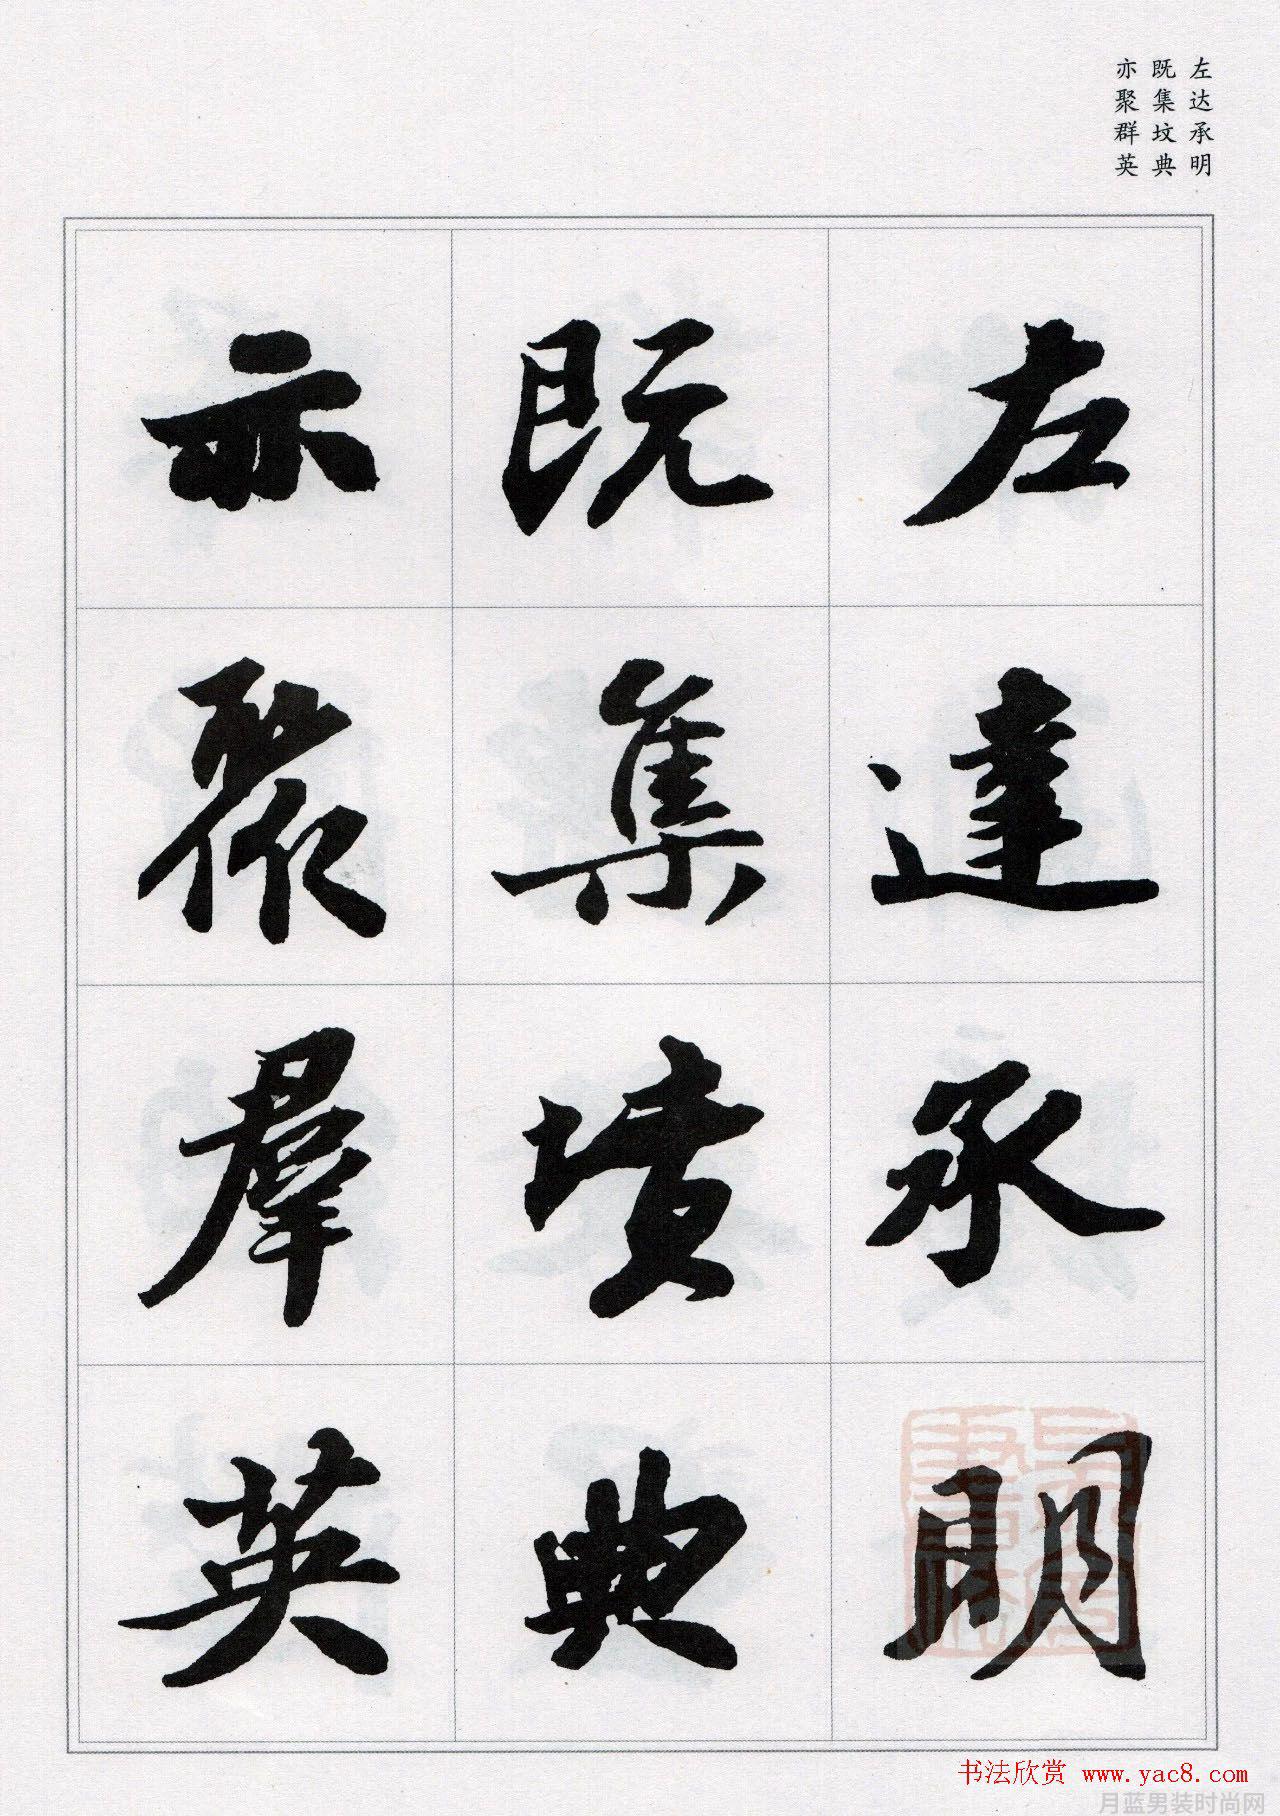 左达承明
既集坟典
亦聚群英
左達承明
既集墳典
亦聚羣英
书法欣赏 www.yac8.com
月蓝男装时尚网